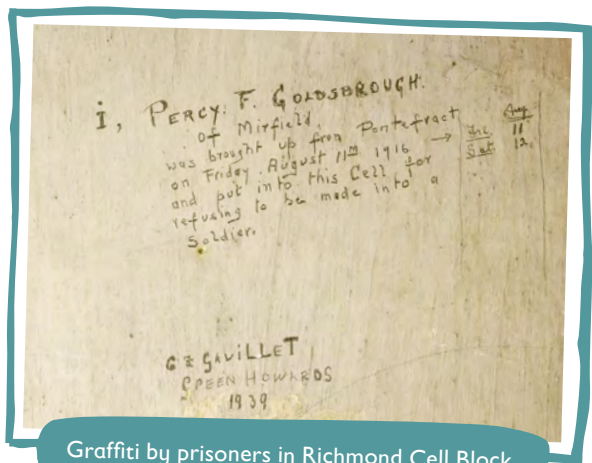 i, PERCY. F. GOLDSBROUGH.
of Mirfield
was brought up from Pontefract
on Friday August 11th 1916 →
and put into this Cell for
refusing to be made into a
Soldier.
Aug
Fri. 11
Sat. 12.
GAVILLET
GREEN HOWARDS
1939
Graffiti by prisoners in Richmond Cell Block